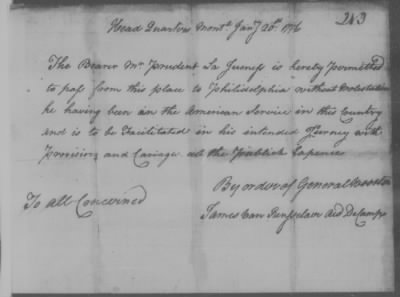 243
Head Quarters Mont.l Jan.y 20th 1776
The Bearer Mr Prudent La Jeuness is hereby permitted
to pass from this place to Philidelphia without Molestation
he having been in the American Service in this Country
and is to be Facilitated in his intended Journey with
Provision, and Cariage at the Publick Expence
By order of General Wooster
To all Concerned
James Van Rensselaer Aid DeCamp